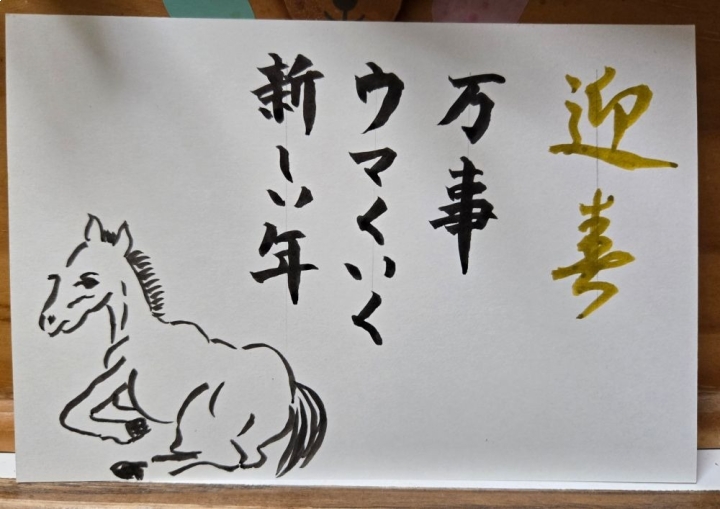 迎春
万事
ウマくいく
新しい年